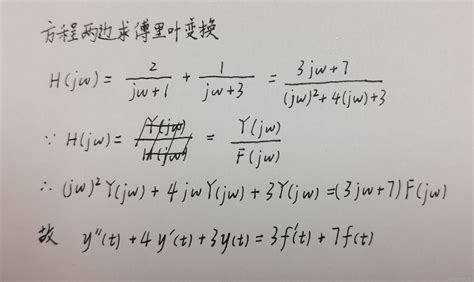 方程两边求傅里叶变换
H(jw) = 2/(jw+1) + 1/(jw+3) = (3jw+7)/((jw)²+4(jw)+3)
∵ H(jw) = Y(jw)/H(jw) = Y(jw)/F(jw)
∴ (jw)²Y(jw) + 4jwY(jw) + 3Y(jw) = (3jw+7)F(jw)
故 y''(t) + 4y'(t) + 3y(t) = 3f'(t) + 7f(t)